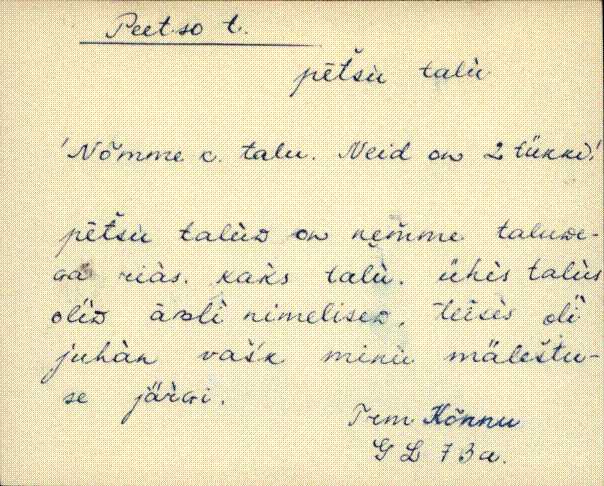 Peetso t.
pētšu talu
'Nõmme k. talu. Neid on 2 tükki.'
pētšu talùᴅ on nemme taluᴅe-
ga riàs. kaks talù. ühès talùs
olìᴅ àᴅli nimeliseᴅ, teisès oli
juhàn vašk minù mälestu-
se järgi.
Trm Kõnnu
G L 73a.